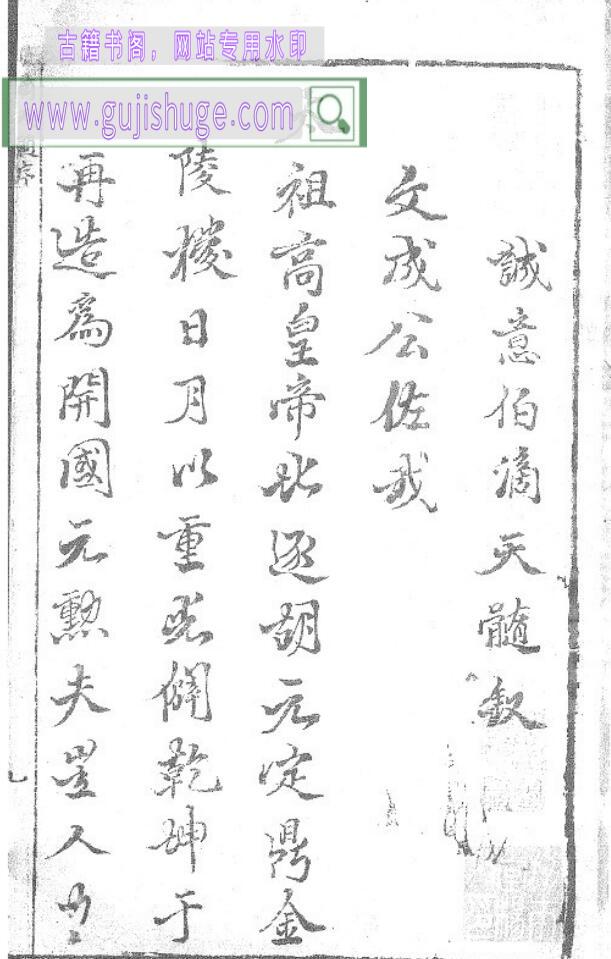 古籍书阁，网站专用水印
www.gujishuge.com
誠意伯滴天髓叙
文成公佐我
祖高皇帝北逐胡元定鼎金
陵日月以重光乾坤于
再造為開國元勲夫豈人
序